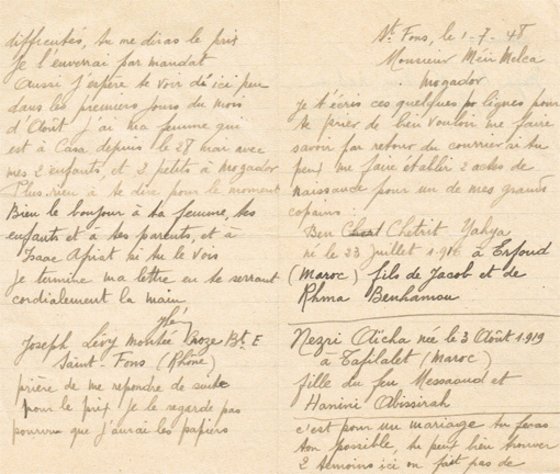 St Fons, le 1-7-48
Monsieur Méir Melca
Mogador
je t'écris ces quelques lignes pour
te prier de bien vouloir me faire
savoir par retour du courrier si tu
peux me faire établir 2 actes de
naissance pour un de mes grands
copains :
Ben Chetrit Yahya
né le 23 Juillet 1916 à Erfoud
(Maroc) fils de Jacob et de
Rhma Benhamou
Nezri Aïcha née le 3 Août 1919
à Tafilalet (Maroc)
fille du feu Messaoud et
Hanini Abissirah
c'est pour un mariage tu feras
ton possible, tu peux bien trouver
2 témoins ici on fait pas de
diffcultés, tu me diras le prix
Je l'enverrai par mandat
Aussi j'espère te voir d'ici peu
dans les premiers jours du mois
d'Août j'ai ma femme qui
est à Casa depuis le 28 mai avec
mes 2 enfants, et 2 petits à Mogador
Plus rien à te dire pour le moment
Bien le bonjour à ta femme, tes
enfants et à tes parents, et à
Isaac Afriat si tu le vois
Je termine ma lettre en te serrant
cordialement la main
Joseph Lévy Montée Croze Bt E
Saint-Fons (Rhône)
prière de me repondre de suite
pour le prix je le regarde pas
pourvu que j'aurai les papiers